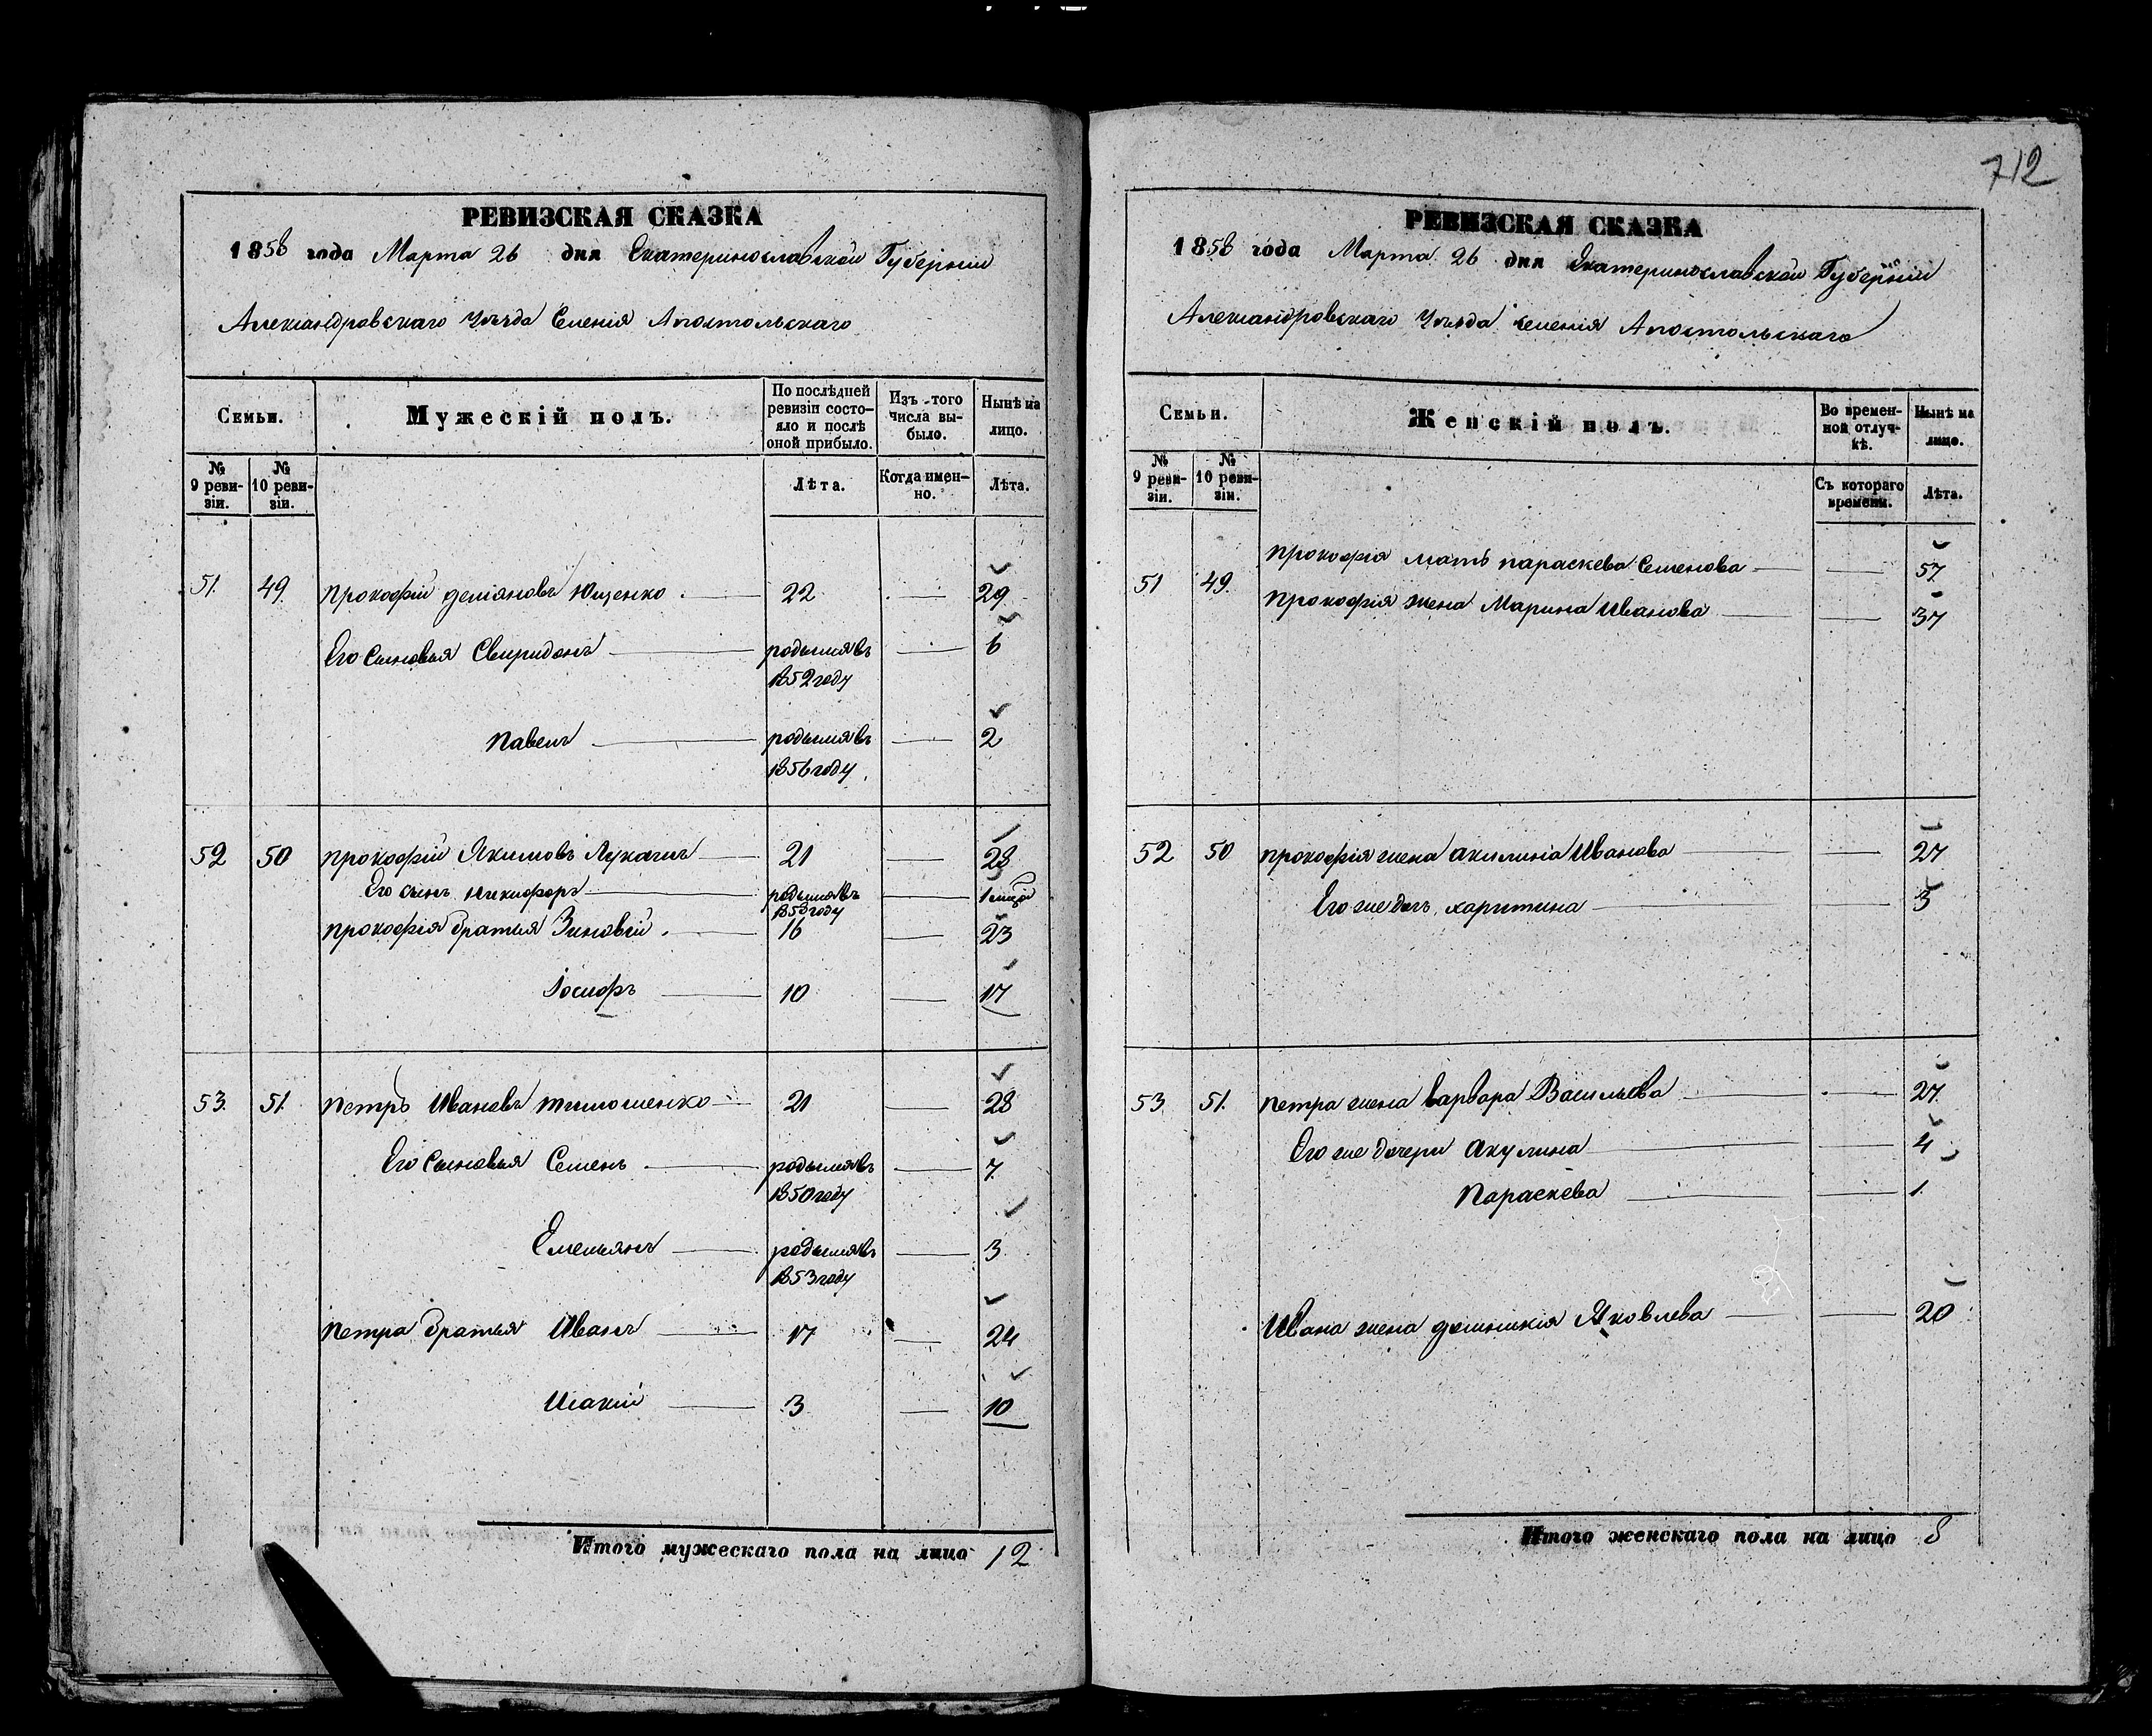 712
РЕВИЗСКАЯ СКАЗКА
1858 года Марта 26 дня Екатеринославской Губерніи
Александровскаго Уѣзда Селенія Апостольскаго
Семьи.
Мужескій полъ.
По послѣдней ревизіи состояло и послѣ оной прибыло.
Изъ того числа выбыло.
Нынѣ на лицо.
№ 9 ревизіи.
№ 10 ревизіи.
Лѣта.
Когда именно.
Лѣта.
51. 49. Прокофій Деміяновъ Ющенко 22 29
Его сыновья Свиридонъ родился въ 1852 году 6
Павелъ родился въ 1856 году 2
52 50 Прокофій Якимовъ Лукачъ 21 28
Его сынъ Никифоръ родился въ году
Прокофія братья Зиновій 16 23
Іосифъ 10 17
53. 51. Петръ Ивановъ Тимошенко 21 28
Его сыновья Семенъ родился въ 1850 году 7
Емельянъ родился въ 1853 году 3
Петра братья Иванъ 17 24
Исакій 3 10
Итого мужескаго пола на лицо 12
РЕВИЗСКАЯ СКАЗКА
1858 года Марта 26 дня Екатеринославской Губерніи
Александровскаго Уѣзда селенія Апостольскаго
Семьи.
Женскій полъ.
Во временной отлучкѣ.
Нынѣ на лицо.
№ 9 ревизіи.
№ 10 ревизіи.
Съ котораго времени.
Лѣта.
51 49. Прокофія мать Параскева Семенова 57
Прокофія жена Марина Иванова 37
52 50 Прокофія жена Акилина Иванова 27
Его же дочь Харитина 3
53 51. Петра жена Варвара Васильева 27.
Его же дочери Акулина 4
Параскева 1.
Ивана жена Домникія Яковлева 20
Итого женскаго пола на лицо 8